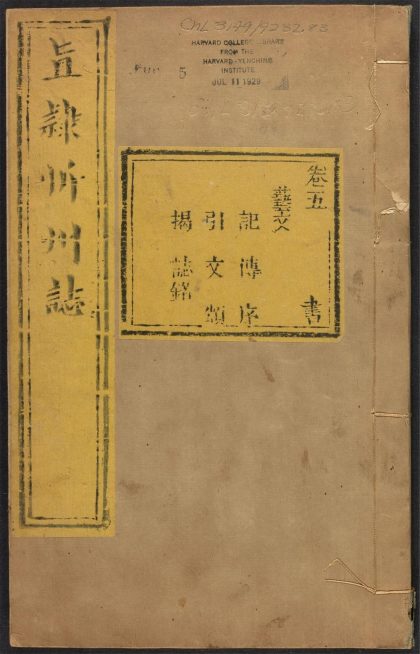 ChL 3149/9232.83
HARVARD COLLEGE LIBRARY
FROM THE
HARVARD-YENCHING
INSTITUTE
JUL 11 1929
5
直隷忻州誌
卷五
藝文 書
記傳序
引文頌
揭誌銘